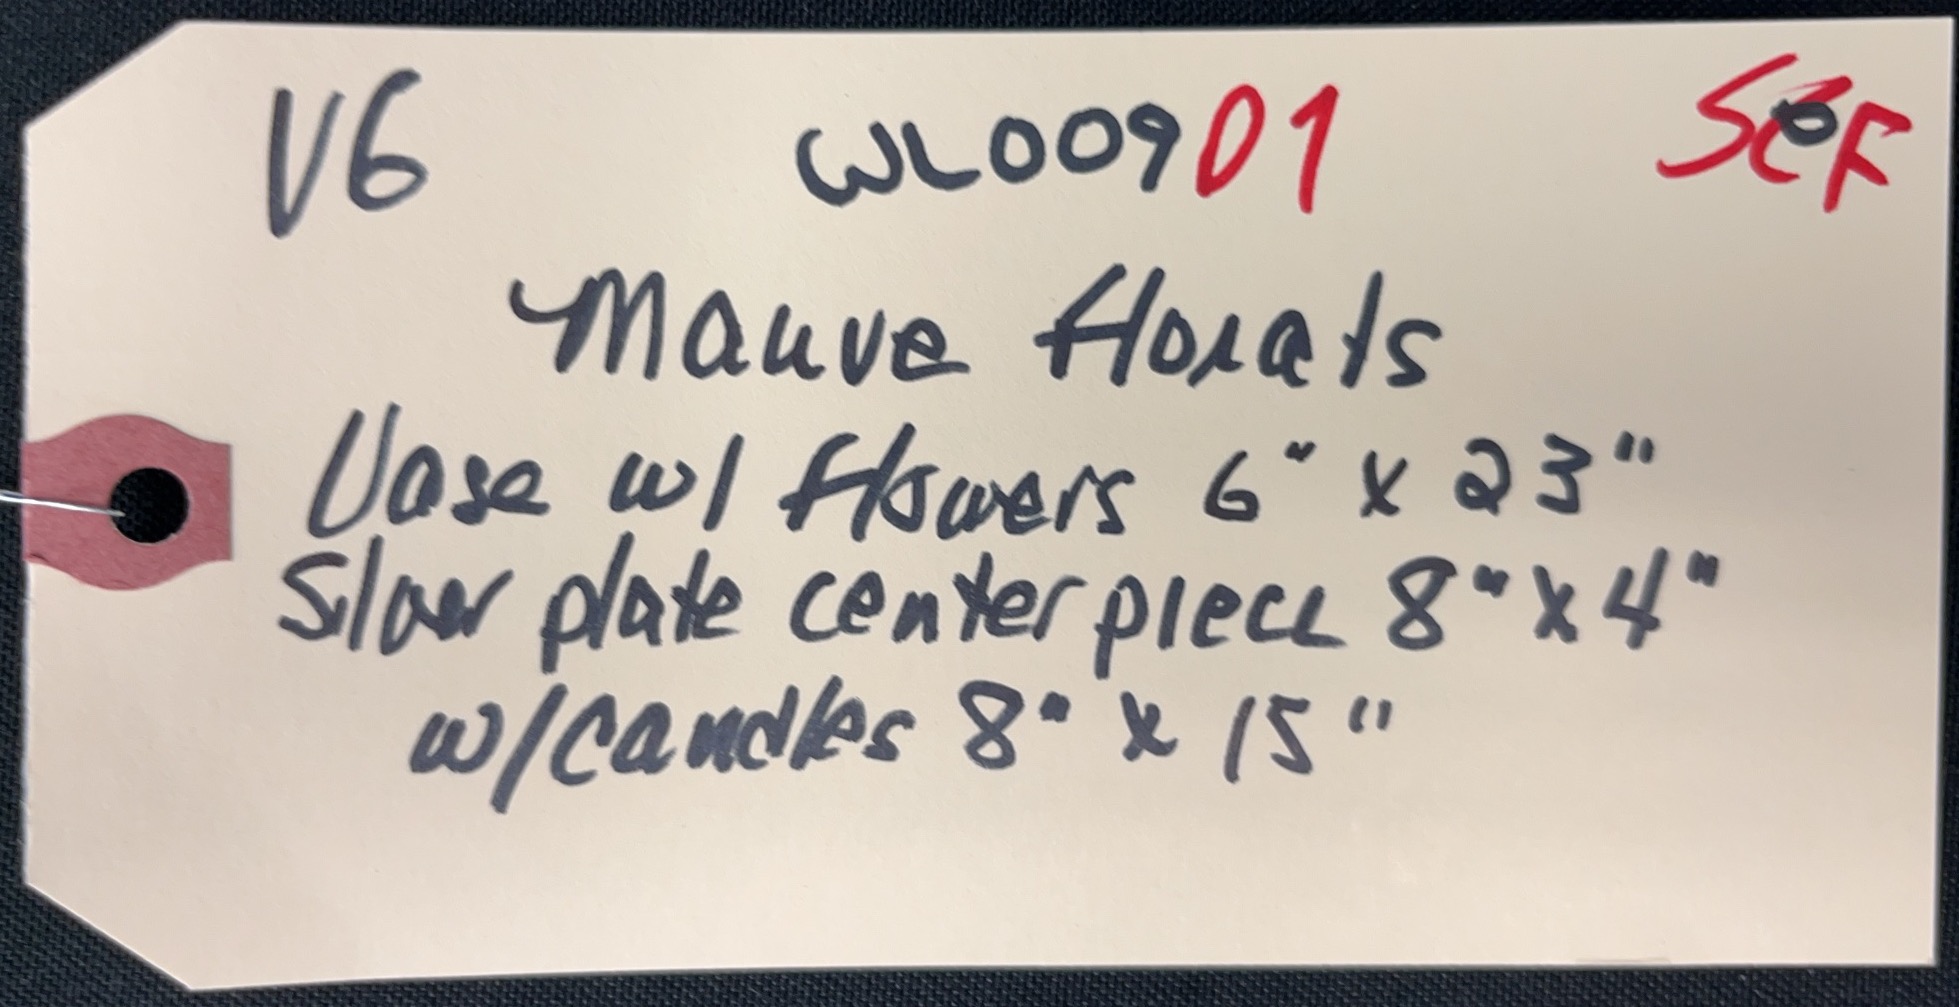 V6 WL00901 SEF
Mauve florals
Vase w/ flowers 6" x 23"
Silver plate centerpiece 8" x 4"
w/candles 8" x 15"